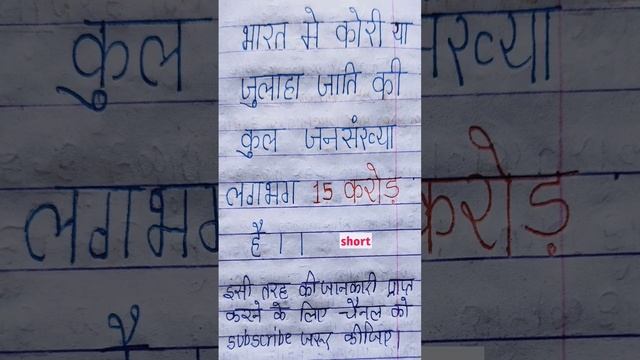 भारत मे कोरी या
जुलाहा जाति की
कुल जनसंख्या
लगभग 15 करोड़
है।।
short
इसी तरह की जानकारी प्राप्त
करने के लिए चैनल को
subscribe जरूर कीजिए।